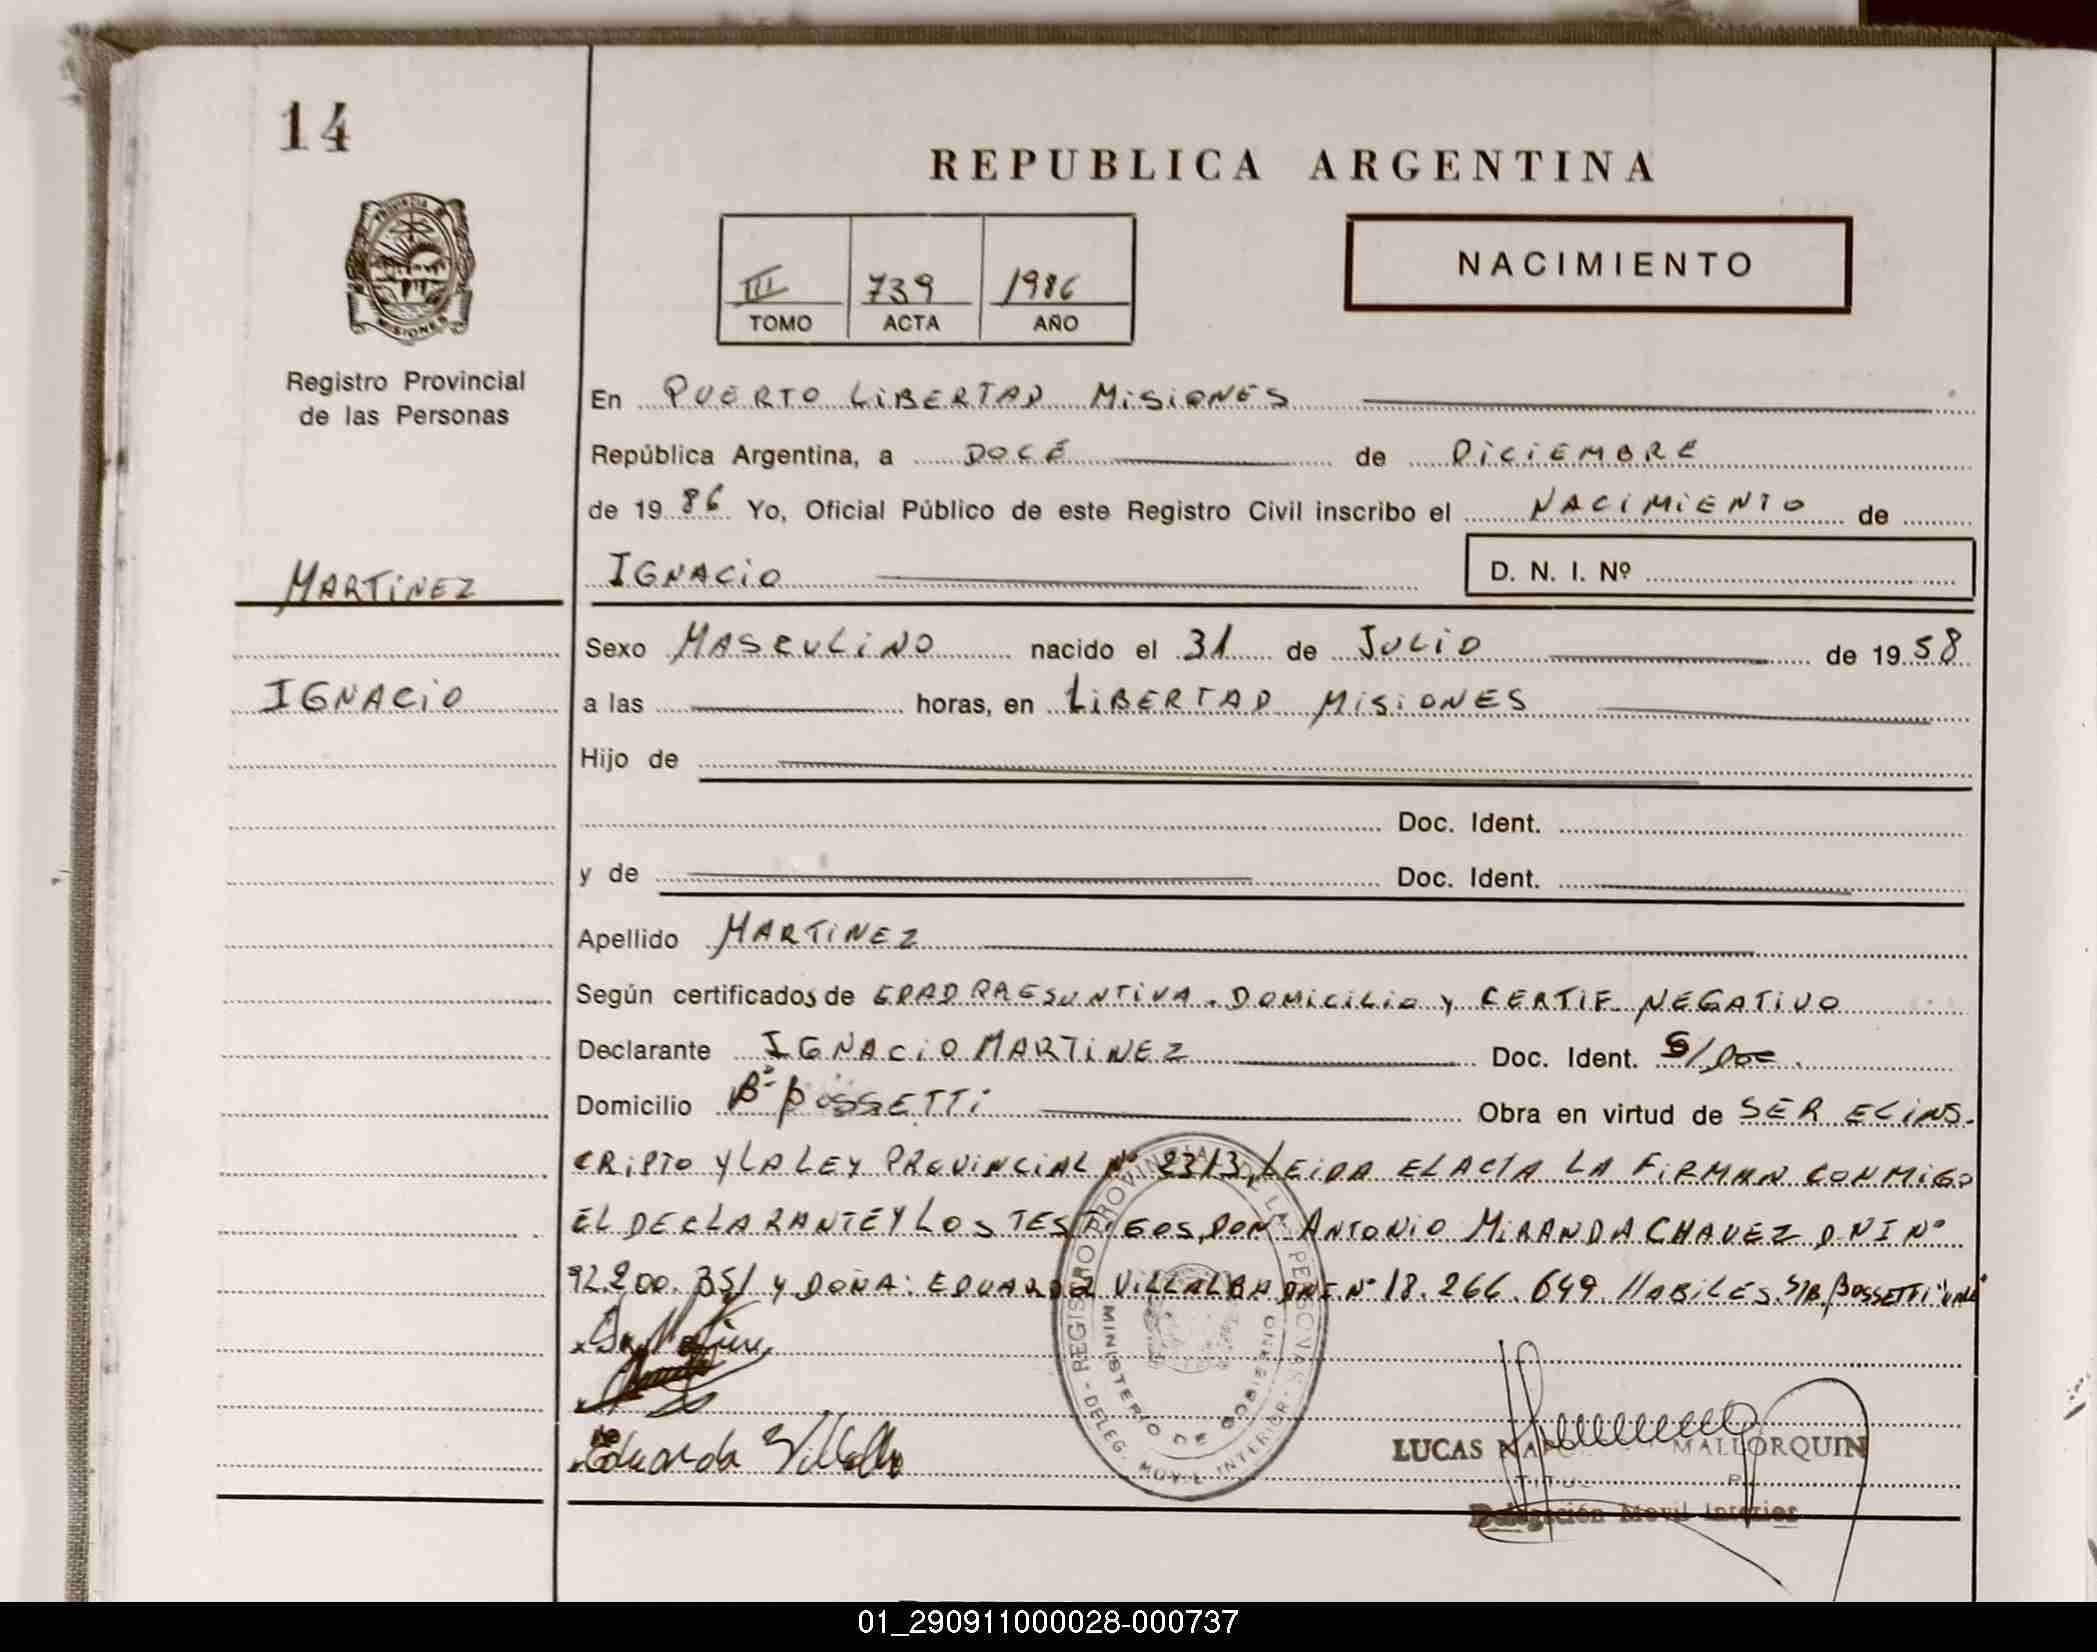 14
REPUBLICA ARGENTINA
PROVINCIA DE
MISIONES
III 739 1986
TOMO ACTA AÑO
NACIMIENTO
Registro Provincial
de las Personas
En PUERTO LIBERTAD MISIONES
República Argentina, a DOCE de DICIEMBRE
de 1986 Yo, Oficial Público de este Registro Civil inscribo el NACIMIENTO de
MARTINEZ
IGNACIO D. N. I. Nº
Sexo MASCULINO nacido el 31 de JULIO de 1958
IGNACIO
a las horas, en LIBERTAD MISIONES
Hijo de
Doc. Ident.
y de Doc. Ident.
Apellido MARTINEZ
Según certificados de EDAD PRAESUNTIVA. DOMICILIO Y CERTIF. NEGATIVO
Declarante IGNACIO MARTINEZ Doc. Ident. S/Doc.
Domicilio Bº BOSSETTI Obra en virtud de SER EL INS-
CRIPTO Y LA LEY PROVINCIAL Nº 2313, LEIDA EL ACTA LA FIRMAN CONMIGO
EL DECLARANTE Y LOS TESTIGOS, DON ANTONIO MIRANDA CHAVEZ DNI Nº
92.200.351 Y DOÑA: EDUARDA VILLALBA DNI Nº 18.266.649. HABILES. S/B. BOSSETTI "VALE"
Eduarda Villalba
REGISTRO PROVINCIAL DE LAS PERSONAS - DELEG. MOVIL INTERIOR -
MINISTERIO DE GOBIERNO
LUCAS MALLORQUIN
Delegación Movil Interior
01_290911000028-000737